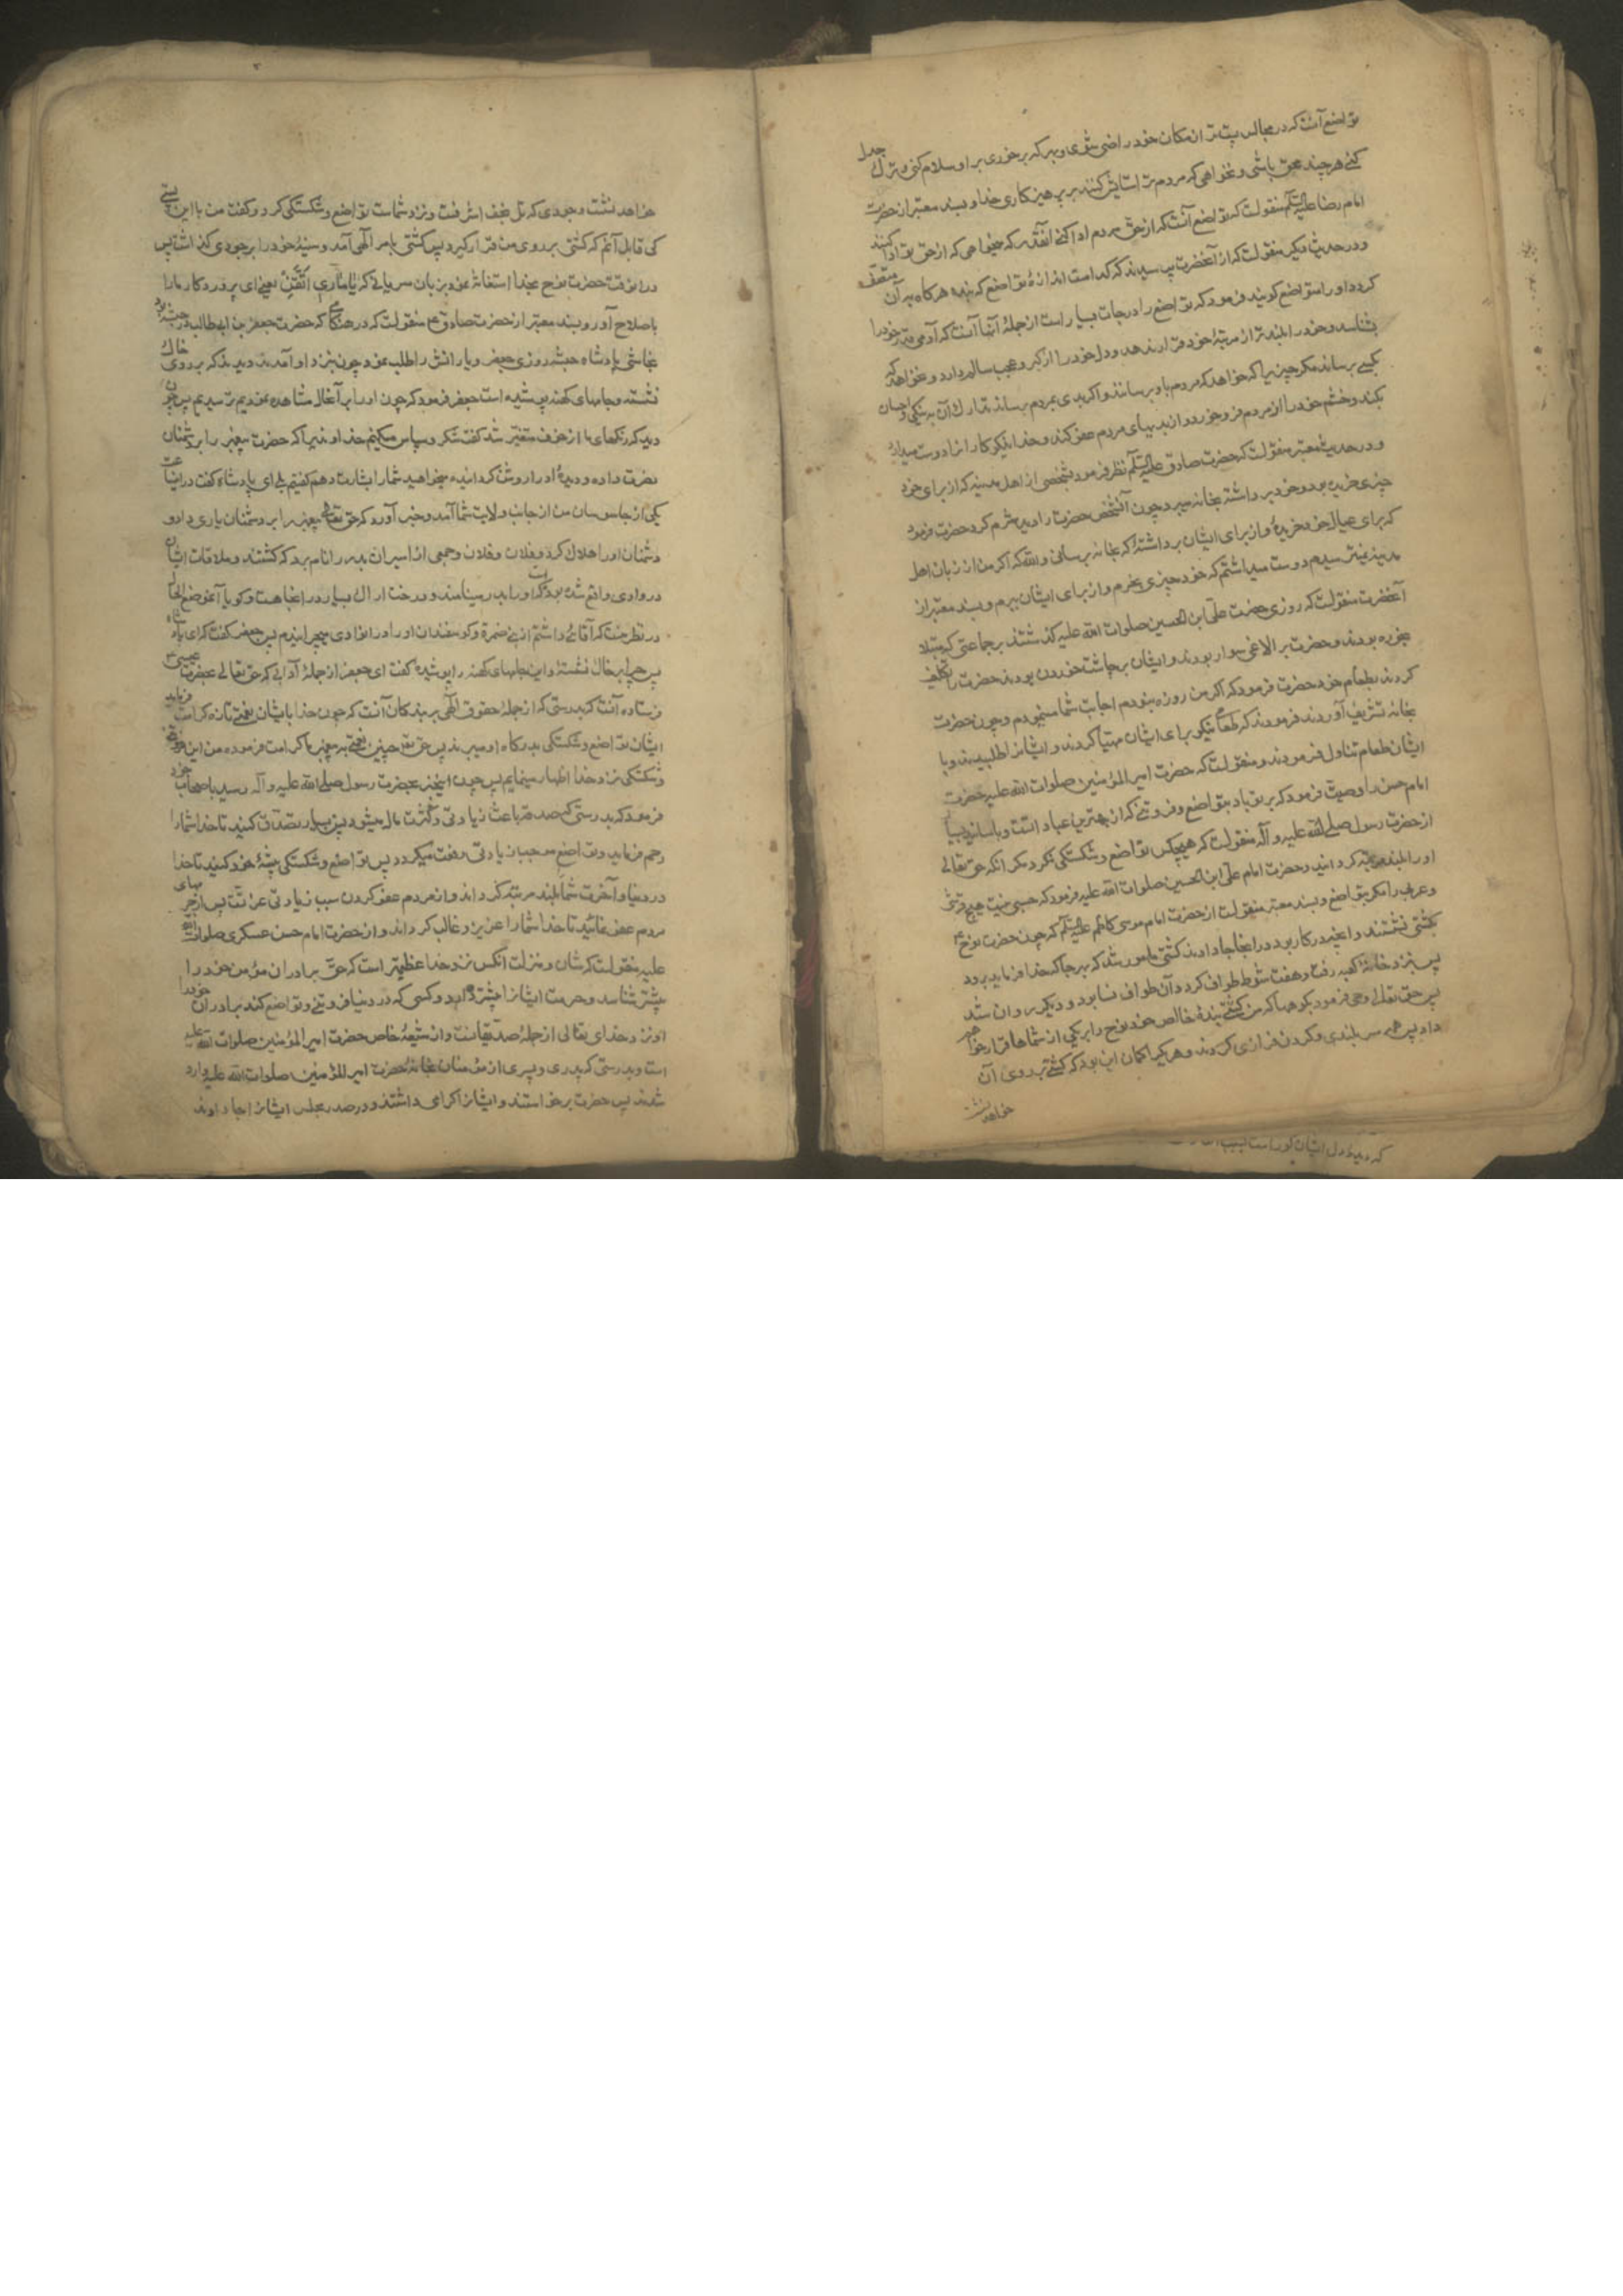 تواضع آنست که در مجالس پست‌تر از مکان خود راضی شوی و بهر که برخوری بر او سلام کنی و ترک جدل
کنی هر چند محق باشی و نخواهی که مردم ترا ستایش کنند بر پرهیزکاری خدا و بسند معتبر از حضرت
امام رضا علیه السلم منقولست که تواضع آنست که از حق مردم ادا کنی آنقدر که میخواهی که از حق تو ادا کنند
و در حدیث دیگر منقولست که از آنحضرت پرسیدند که کدام است اندازهٔ تواضع که بنده هرگاه به آن متصف
گردد او را متواضع گویند فرمود که تواضع را درجات بسیار است از جملهٔ آنها آنست که آدمی قدر خود را
بشناسد و خود را بلندتر از مرتبهٔ خود قرار ندهد و دل خود را از کبر و عجب سالم دارد و نخواهد که
بکسی برساند مگر چیزیرا که خواهد که مردم باو برسانند و اگر بدی بمردم برساند تدارک آن به نیکی و احسان
بکند و خشم خود را از مردم فرو خورد و از بدیهای مردم عفو کند و خدا نیکوکارانرا دوست میدارد
و در حدیث معتبر منقولست که حضرت صادق علیه السلم نظر فرمود بشخصی از اهل مدینه که از برای خود
چیزی خریده بود و خود برداشته بخانه میبرد چون آنشخص حضرت را دید شرم کرد حضرت فرمود
که برای عیال خود خریدهٔ و از برای ایشان برداشتهٔ که بخانه برسانی والله که اگر من از زبان اهل
مدینه نمیترسیدم دوست میداشتم که خود چیزی بخرم و از برای ایشان ببرم و بسند معتبر از
آنحضرت منقولست که روزی حضرت علی ابن الحسین صلوات الله علیه گذشتند بر جماعتی که مبتلا
بخوره بودند و حضرت بر الاغی سوار بودند و ایشان بر چاشت خوردن بودند حضرت را تکلیف
کردند بطعام خود حضرت فرمود که اگر من روزه نبودم اجابت شما مینمودم و چون حضرت
بخانه تشریف آوردند فرمودند که طعام نیکو برای ایشان مهیا کردند و ایشانرا طلبیدند و با
ایشان طعام تناول فرمودند و منقولست که حضرت امیر المؤمنین صلوات الله علیه حضرت
امام حسن را وصیت فرمود که بر تو باد بتواضع و فروتنی که از بهترین عباداتست و باسانید بسیار
از حضرت رسول صلی الله علیه و آله منقولست که هیچکس تواضع و شکستگی نکرد مگر آنکه حق تعالی
او را بلند مرتبه گردانید و حضرت امام علی ابن الحسین صلوات الله علیه فرمود که حسبی نیست هیچ قرشی
و عربی را مگر بتواضع و بسند معتبر منقولست از حضرت امام موسی کاظم علیه السلم که چون حضرت نوح ع
بکشتی نشستند و آنچه در کار بود در آنجا جا دادند کشتی مامور شد که بهر جا که خدا فرماید برود
پس بنزد خانهٔ کعبه رفت و هفت شوط طواف کرد و آن طواف نسا بود و دیگر روان شد
پس حق تعالی وحی فرمود بکوهها که من کشتی بندهٔ خالص خود نوح را بر یکی از شماها قرار خواهم
داد پس همه سربلندی و گردن فرازی کردند و هر یک را گمان این بود که کشتی بر روی آن
خواهد نشست
که دیدهٔ دل ایشان کور است
خواهد نشست و جودی که تل نجف اشرفست و نزد شماست تواضع و شکستگی کرد و گفت من با این پستی
کی قابل آنم که کشتی بر روی من قرار گیرد پس کشتی بامر الهی آمد و سینهٔ خود را بر جودی گذاشت پس
در آنوقت حضرت نوح بخدا استغاثه نمود بزبان سریانی که یا ماری اتقن یعنی ای پروردگار ما را
باصلاح آور و بسند معتبر از حضرت صادق ع منقولست که در هنگامی که حضرت جعفر بن ابیطالب در حبشه بود
نجاشی پادشاه حبشه روزی جعفر و یارانش را طلب نمود چون بنزد او آمدند دیدند که بر روی خاک
نشسته و جامهای کهنه پوشیده است جعفر فرمود که چون او را بر آنحال مشاهده نمودیم ترسیدیم پس چون
دید که رنگهای ما از خوف متغیر شد گفت شکر و سپاس میکنم خداوندیرا که حضرت پیغمبر را بر دشمنان
نصرت داده و دیدهٔ او را روشن گردانیده میخواهید شما را بشارت دهم گفتیم بلی ای پادشاه گفت در این ساعت
یکی از جاسوسان من از جانب ولایت شما آمد و خبر آورد که حق تعالی پیغمبر را بر دشمنان یاری داد و
دشمنان او را هلاک کرد و فلان و فلان و جمعی از اسیران بدر را نام برد که کشتند و ملاقات ایشان
در وادی واقع شده بود که او را بدر مینامند و درخت اراک بسیار در آنجا هست و گویا آنموضع الحال
در نظر منست که آقائی داشتم از بنی ضمره و گوسفندان او را در انوادی میچرانیدم پس جعفر گفت که ای پادشاه
پس چرا بر خاک نشستهٔ و این جامهای کهنه را پوشیدهٔ گفت ای جعفر از جملهٔ آدابی که حق تعالی بحضرت عیسی ع
فرستاده آنست که بدرستی که از جملهٔ حقوق الهی بر بندگان آنست که چون خدا بایشان نعمتی تازه کرامت فرماید
ایشان تواضع و شکستگی بدرگاه او میبرند پس حق تعالی چنین نعمتی به پیغمبر ما کرامت فرموده من این فروتنی
و شکستگی نزد خدا اظهار مینمایم پس چون این خبر بحضرت رسول صلی الله علیه و آله رسید باصحاب خود
فرمود که بدرستی که صدقه باعث زیادتی و کثرت مال میشود پس بسیار تصدق کنید تا خدا شما را
رحم فرماید و تواضع موجب زیادتی رفعت میگردد پس تواضع و شکستگی پیشهٔ خود کنید تا خدا
در دنیا و آخرت شما را بلند مرتبه گرداند و از مردم عفو کردن سبب زیادتی عزتست پس از جرمهای
مردم عفو نمائید تا خدا شما را عزیز و غالب گرداند و از حضرت امام حسن عسکری صلوات الله
علیه منقولست که شان و منزلت آنکس نزد خدا عظیمتر است که حق برادران مؤمن خود را
بیشتر شناسد و حرمت ایشانرا بیشتر دارد و کسی که در دنیا فروتنی و تواضع کند برادران خود را
او نزد خدای تعالی از جملهٔ صدیقانست و از شیعهٔ خاص حضرت امیر المؤمنین صلوات الله علیه
است و بدرستی که پدری و پسری از مؤمنان بخانهٔ حضرت امیر المؤمنین صلوات الله علیه وارد
شدند پس حضرت برخواستند و ایشانرا گرامی داشتند و در صدر مجلس ایشانرا جا دادند